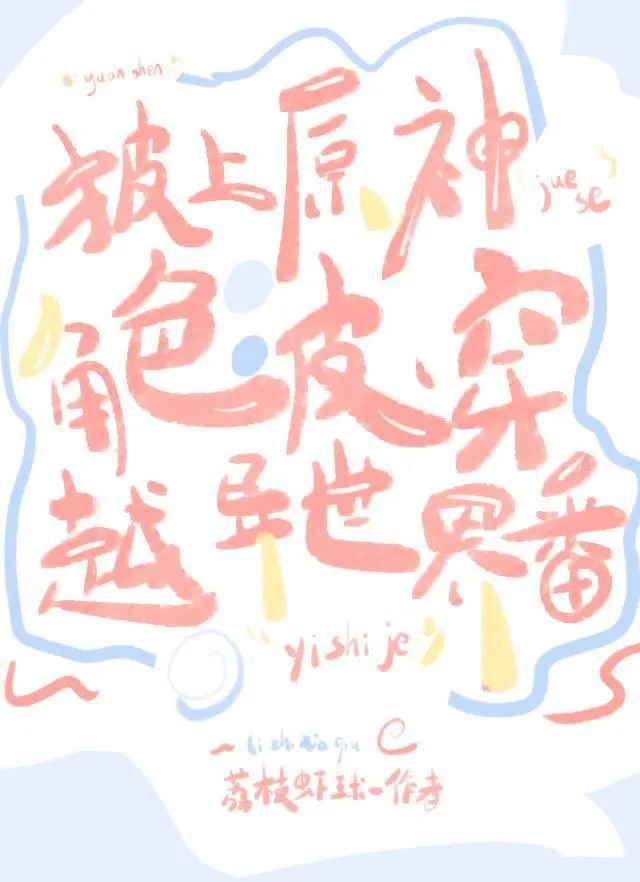 yuan shen
披上原神
jue
se
角色皮穿
越异世界番
yi shi je
li zhi xia qiu
荔枝虾球-作者